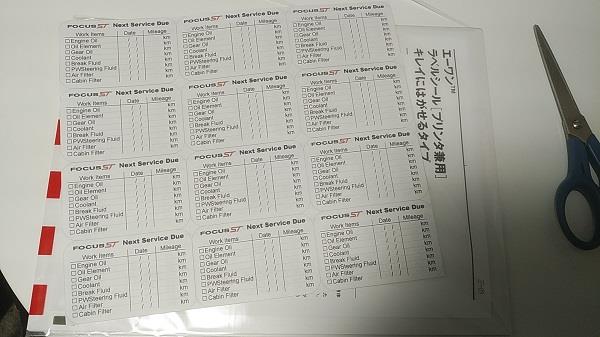 FOCUS ST Next Service Due
Work Items Date Mileage
Engine Oil / / km
Oil Element / / km
Gear Oil / / km
Coolant / / km
Break Fluid / / km
PWSteering Fluid / / km
Air Filter / / km
Cabin Filter / / km
FOCUS ST Next Service Due
Work Items Date Mileage
Engine Oil / / km
Oil Element / / km
Gear Oil / / km
Coolant / / km
Break Fluid / / km
PWSteering Fluid / / km
Air Filter / / km
Cabin Filter / / km
FOCUS ST Next Service Due
Work Items Date Mileage
Engine Oil / / km
Oil Element / / km
Gear Oil / / km
Coolant / / km
Break Fluid / / km
PWSteering Fluid / / km
Air Filter / / km
Cabin Filter / / km
FOCUS ST Next Service Due
Work Items Date Mileage
Engine Oil / / km
Oil Element / / km
Gear Oil / / km
Coolant / / km
Break Fluid / / km
PWSteering Fluid / / km
Air Filter / / km
Cabin Filter / / km
FOCUS ST Next Service Due
Work Items Date Mileage
Engine Oil / / km
Oil Element / / km
Gear Oil / / km
Coolant / / km
Break Fluid / / km
PWSteering Fluid / / km
Air Filter / / km
Cabin Filter / / km
FOCUS ST Next Service Due
Work Items Date Mileage
Engine Oil / / km
Oil Element / / km
Gear Oil / / km
Coolant / / km
Break Fluid / / km
PWSteering Fluid / / km
Air Filter / / km
Cabin Filter / / km
FOCUS ST Next Service Due
Work Items Date Mileage
Engine Oil / / km
Oil Element / / km
Gear Oil / / km
Coolant / / km
Break Fluid / / km
PWSteering Fluid / / km
Air Filter / / km
Cabin Filter / / km
FOCUS ST Next Service Due
Work Items Date Mileage
Engine Oil / / km
Oil Element / / km
Gear Oil / / km
Coolant / / km
Break Fluid / / km
PWSteering Fluid / / km
Air Filter / / km
Cabin Filter / / km
FOCUS ST Next Service Due
Work Items Date Mileage
Engine Oil / / km
Oil Element / / km
Gear Oil / / km
Coolant / / km
Break Fluid / / km
PWSteering Fluid / / km
Air Filter / / km
Cabin Filter / / km
FOCUS ST Next Service Due
Work Items Date Mileage
Engine Oil / / km
Oil Element / / km
Gear Oil / / km
Coolant / / km
Break Fluid / / km
PWSteering Fluid / / km
Air Filter / / km
Cabin Filter / / km
FOCUS ST Next Service Due
Work Items Date Mileage
Engine Oil / / km
Oil Element / / km
Gear Oil / / km
Coolant / / km
Break Fluid / / km
PWSteering Fluid / / km
Air Filter / / km
Cabin Filter / / km
FOCUS ST Next Service Due
Work Items Date Mileage
Engine Oil / / km
Oil Element / / km
Gear Oil / / km
Coolant / / km
Break Fluid / / km
PWSteering Fluid / / km
Air Filter / / km
Cabin Filter / / km
エーワン™
ラベルシール[プリンタ兼用]
キレイにはがせるタイプ